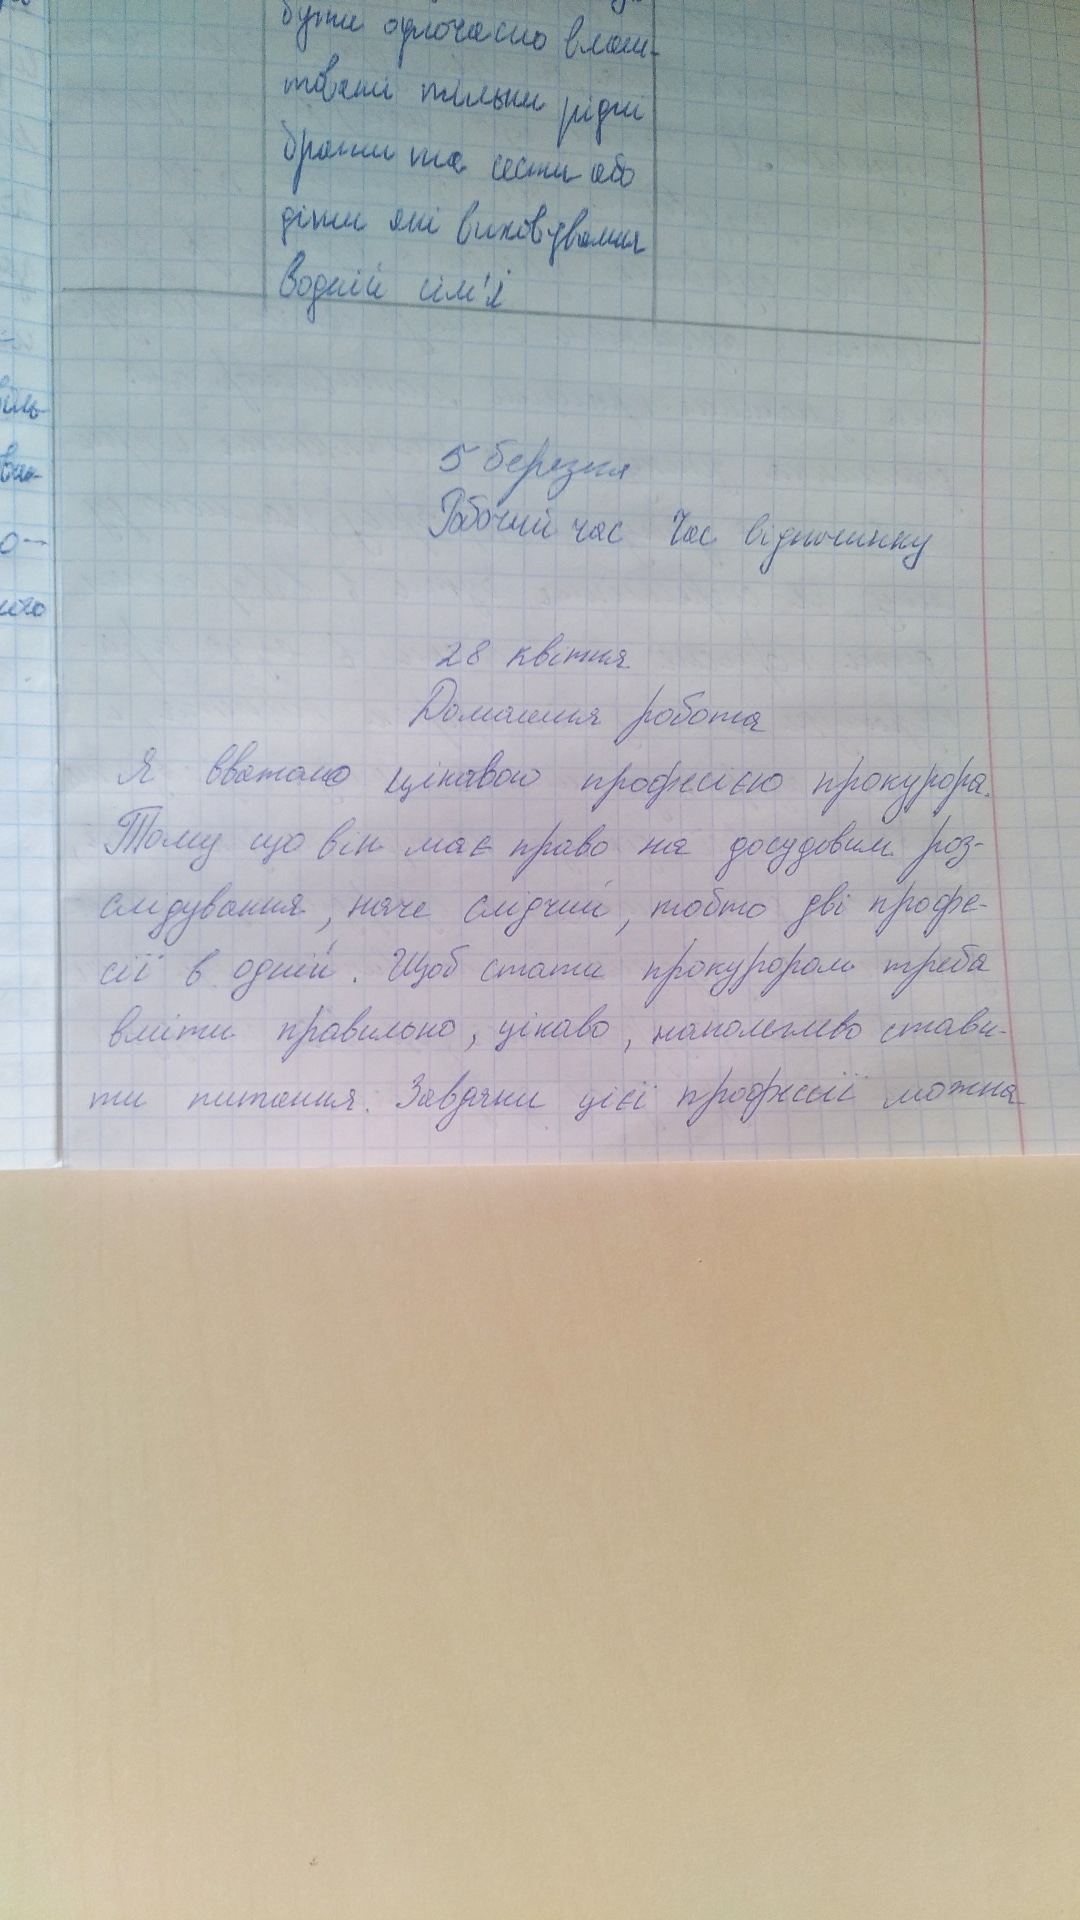 бути одночасно влаш-
товані тільки рідні
брати та сести або
діти які виховувалися
водній сім'ї
5 березня
Робочий час Час відпочинку
28 квітня
Домашня робота
Я вважаю цікавою професією прокурора.
Тому що він має право на досудовим роз-
слідування, наче слідчий, тобто дві профе-
сії в одній. Щоб стати прокурором треба
вміти правильно, цікаво, наполегливо стави-
ти питання. Завдяки цієї професії можна